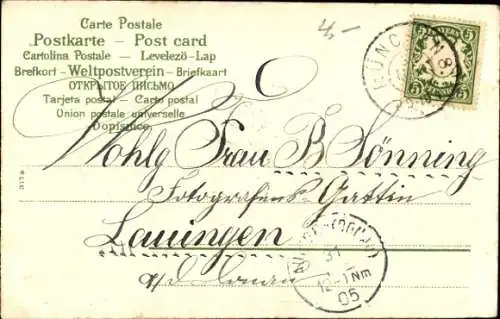 4,-
Carte Postale
Postkarte – Post card
Cartolina Postale – Levelező-Lap
Brefkort – Weltpostverein – Briefkaart
ОТКРЫТОЕ ПИСЬМО
Tarjeta postal – Carto postal
Union postale universelle
Dopisnice
5
5
MÜNCH
N 8.
Wohlg Frau B Sönning
Fotografens-Gattin
Lauingen
a/d Donau
31
12-1 Nm
05